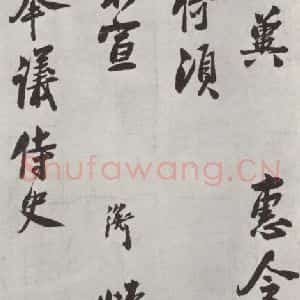 冀惠令
須
宣
奉議侍史
Shufawang.CN